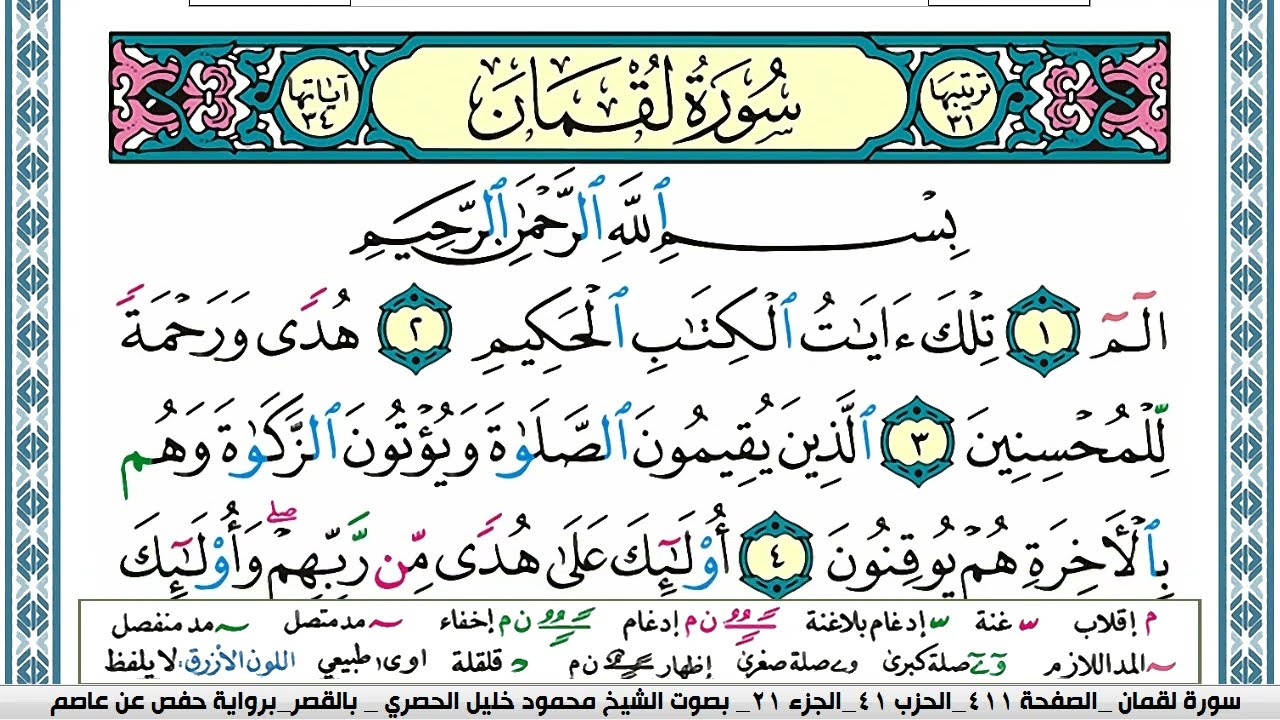 ترتيبها ٣١ سُورَةُ لُقْمَان آياتها ٣٤
بِسْمِ ٱللَّهِ ٱلرَّحْمَٰنِ ٱلرَّحِيمِ
الٓمٓ ١ تِلْكَ ءَايَٰتُ ٱلْكِتَٰبِ ٱلْحَكِيمِ ٢ هُدًى وَرَحْمَةً
لِّلْمُحْسِنِينَ ٣ ٱلَّذِينَ يُقِيمُونَ ٱلصَّلَوٰةَ وَيُؤْتُونَ ٱلزَّكَوٰةَ وَهُم
بِٱلْأَخِرَةِ هُمْ يُوقِنُونَ ٤ أُو۟لَٰٓئِكَ عَلَىٰ هُدًى مِّن رَّبِّهِمْ ۖ وَأُو۟لَٰٓئِكَ
م إقلاب س غنة س إدغام بلاغنة ن م إدغام ن م إخفاء ~ مد متصل ~ مد منفصل
~ المد اللازم و ے صلة كبرى و ے صلة صغرى إظهار ن م د قلقلة اوى، طبيعي اللون الأزرق: لا يلفظ
سورة لقمان _الصفحة ٤١١_الحزب ٤١_الجزء ٢١_ بصوت الشيخ محمود خليل الحصري _ بالقصر_برواية حفص عن عاصم